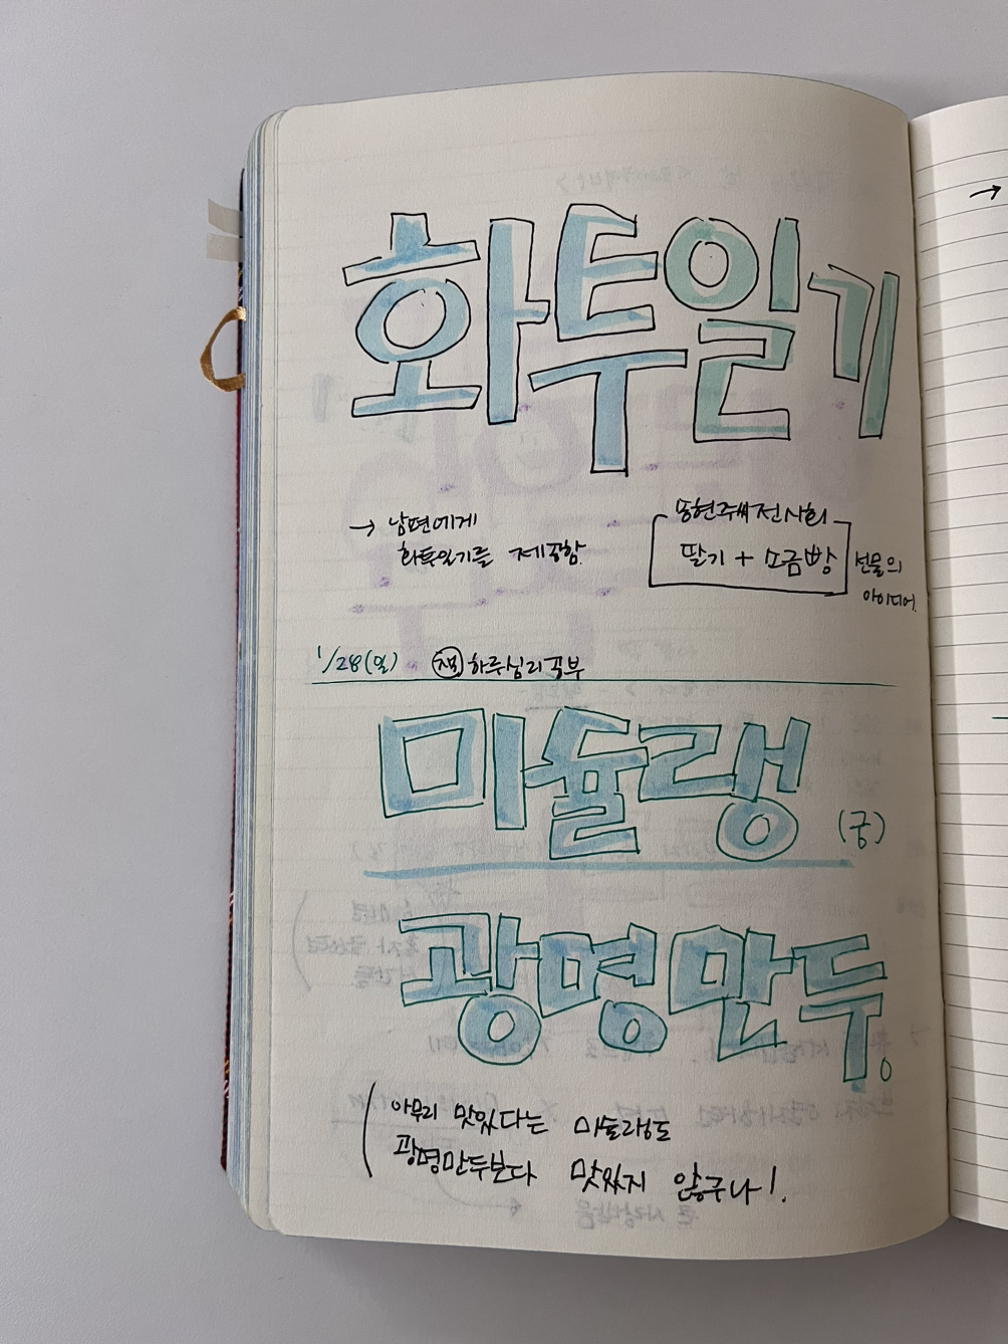 화투일기
→ 남편에게
화투일기를 제공함.
동현주씨 전시회
딸기 + 소금빵
선물의
아이디어.
1/28(일) 책 하루심리공부
미슐랭
(궁)
광명만두.
아무리 맛있다는 미슐랭도
광명만두보다 맛있지 않구나!.
→